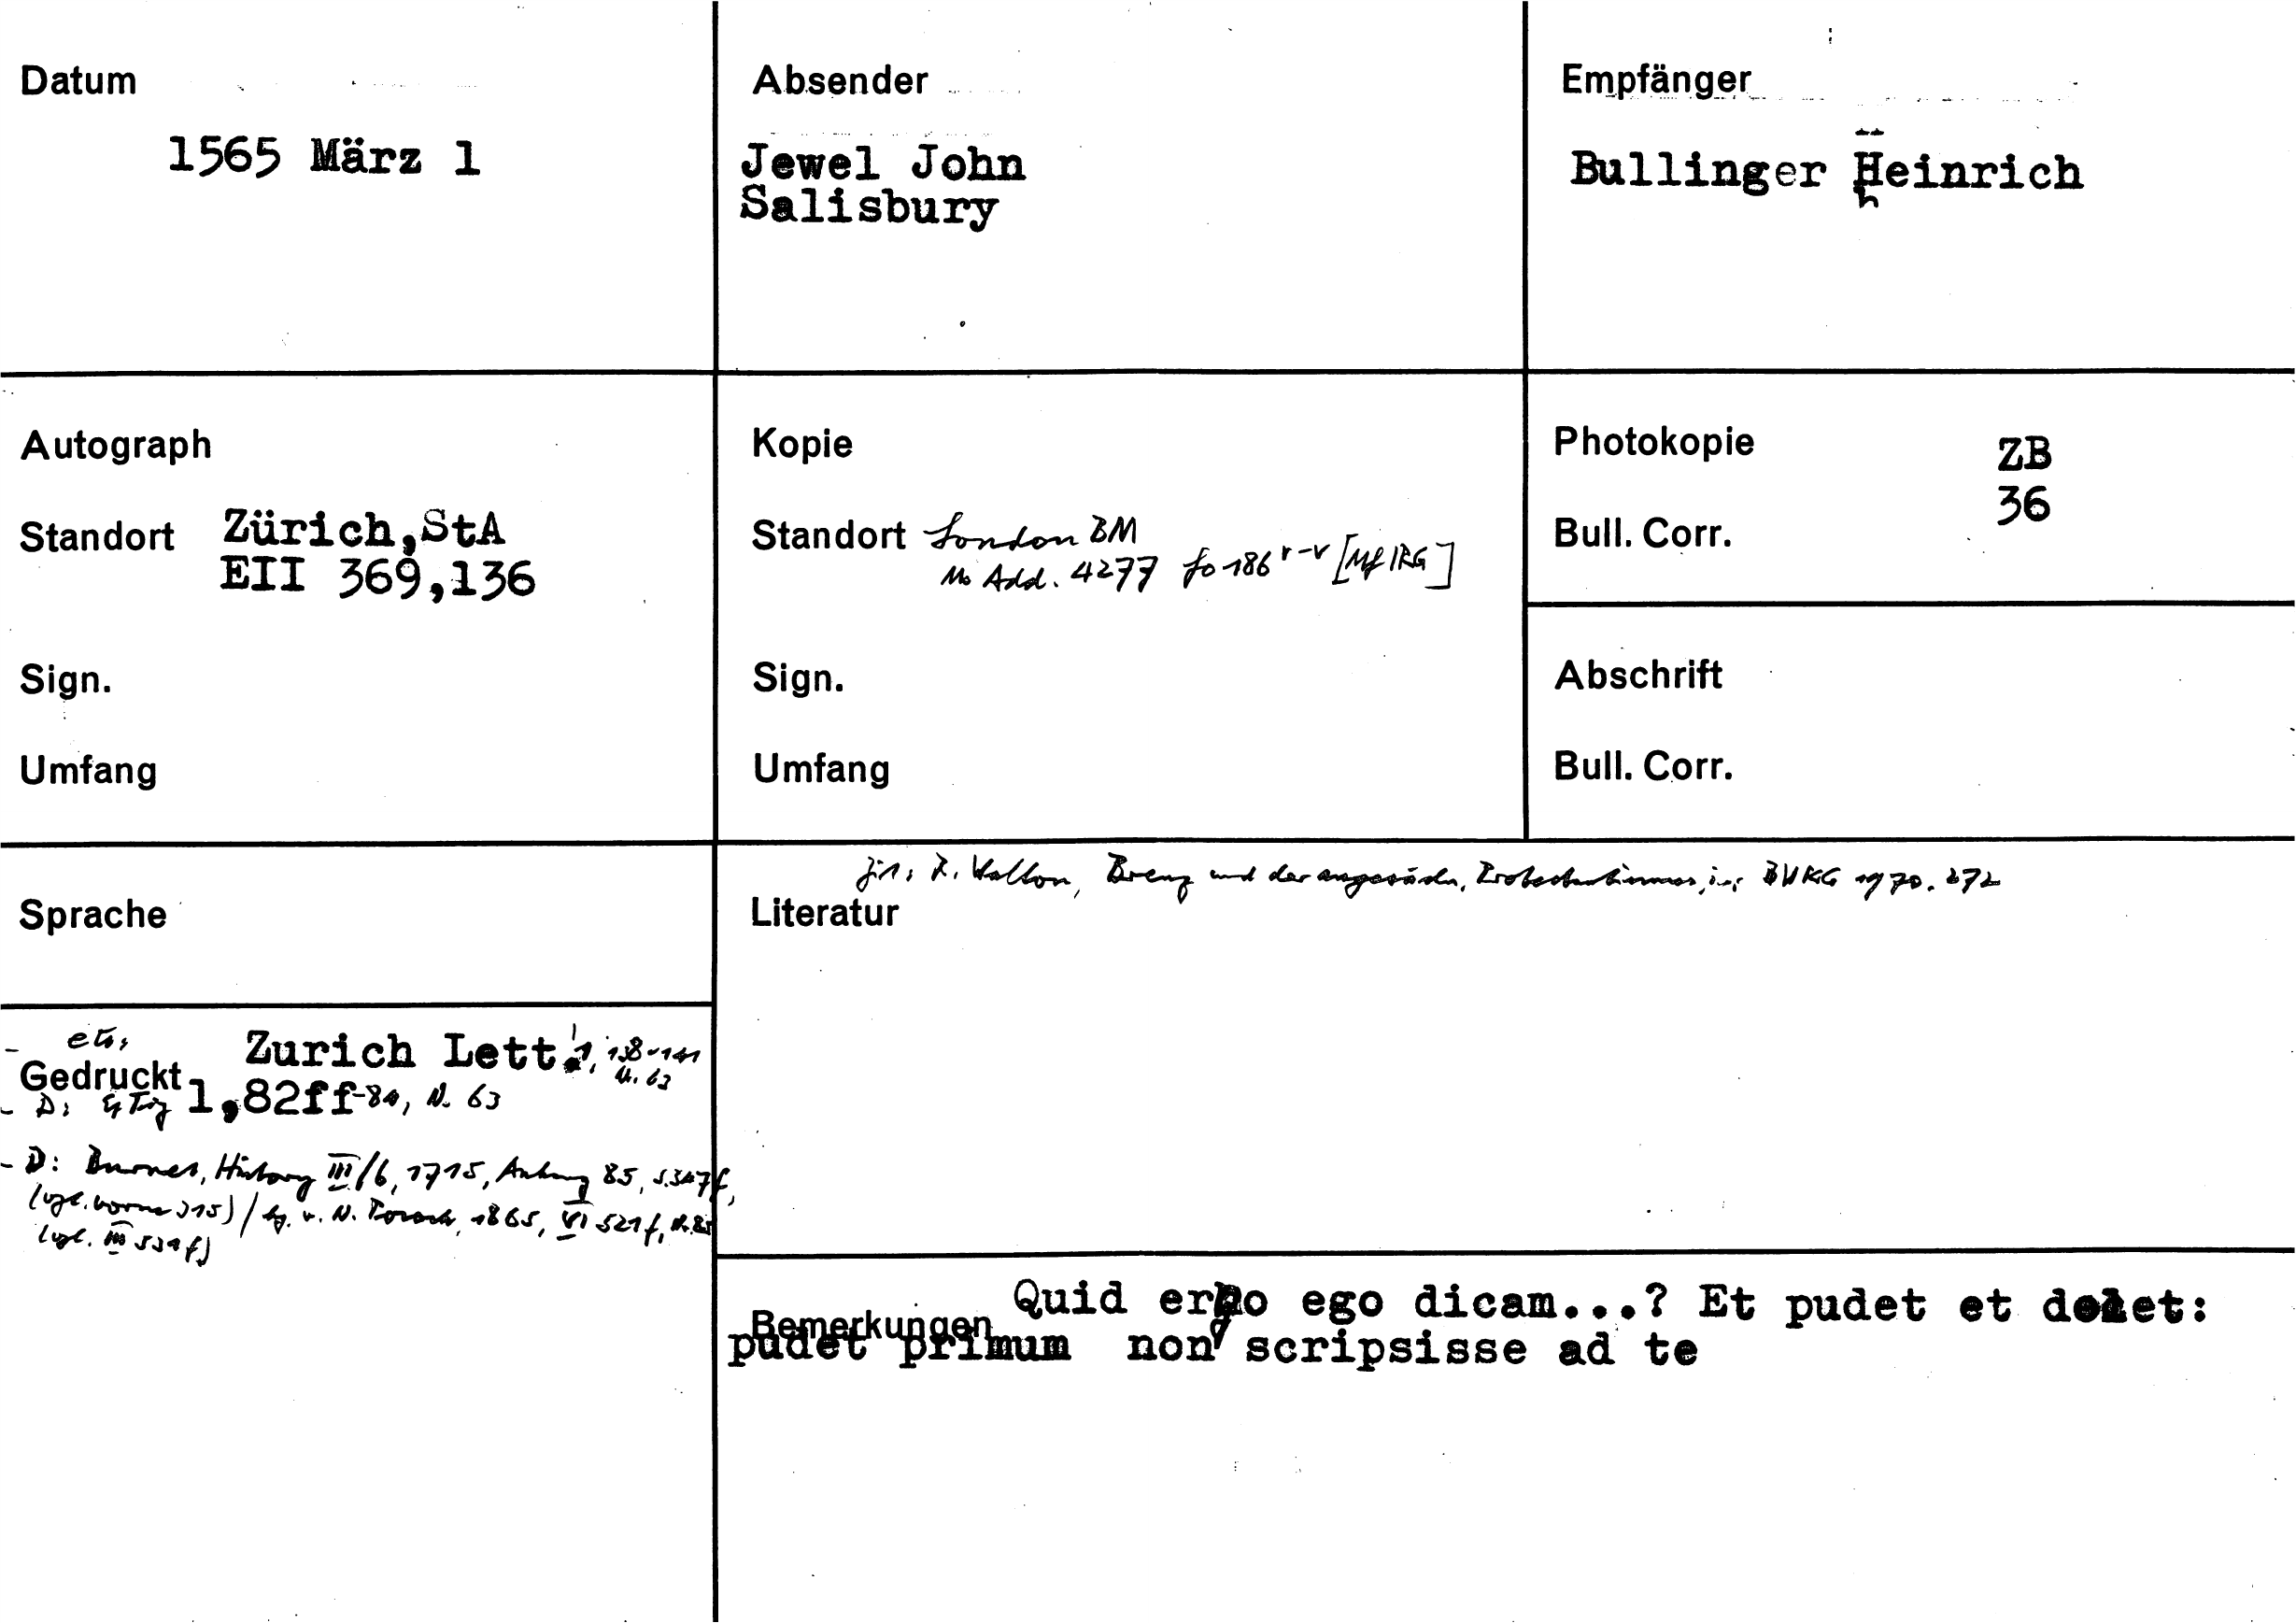 Datum
1565 März 1
Absender
Jewel John
Salisbury
Empfänger
Bullinger Heinrich
Autograph
Standort Zürich,StA
EII 369,136
Sign.
Umfang
Kopie
Standort London BM
Ms Add. 4277 fo 186 r-v [Mf IRG]
Sign.
Umfang
Photokopie ZB
36
Bull. Corr.
Abschrift
Bull. Corr.
Sprache
zit: R. Walton, Brenz und der angelsächs. Protestantismus, in: BWKG 1970. 272
Literatur
Zurich Lett. 1, 138-141
N. 63
Gedruckt
- D: 1,82ff-84, N. 63
- D: Burnet, History III/6, 1715, Anhang 85, S.347f,
(vgl. vorne 315) / hg. v. N. Pocock, 1865, VI 521f, N.85
(vgl. III 531f)
Quid ergo ego dicam...? Et pudet et dolet:
Bemerkungen
pudet primum non scripsisse ad te